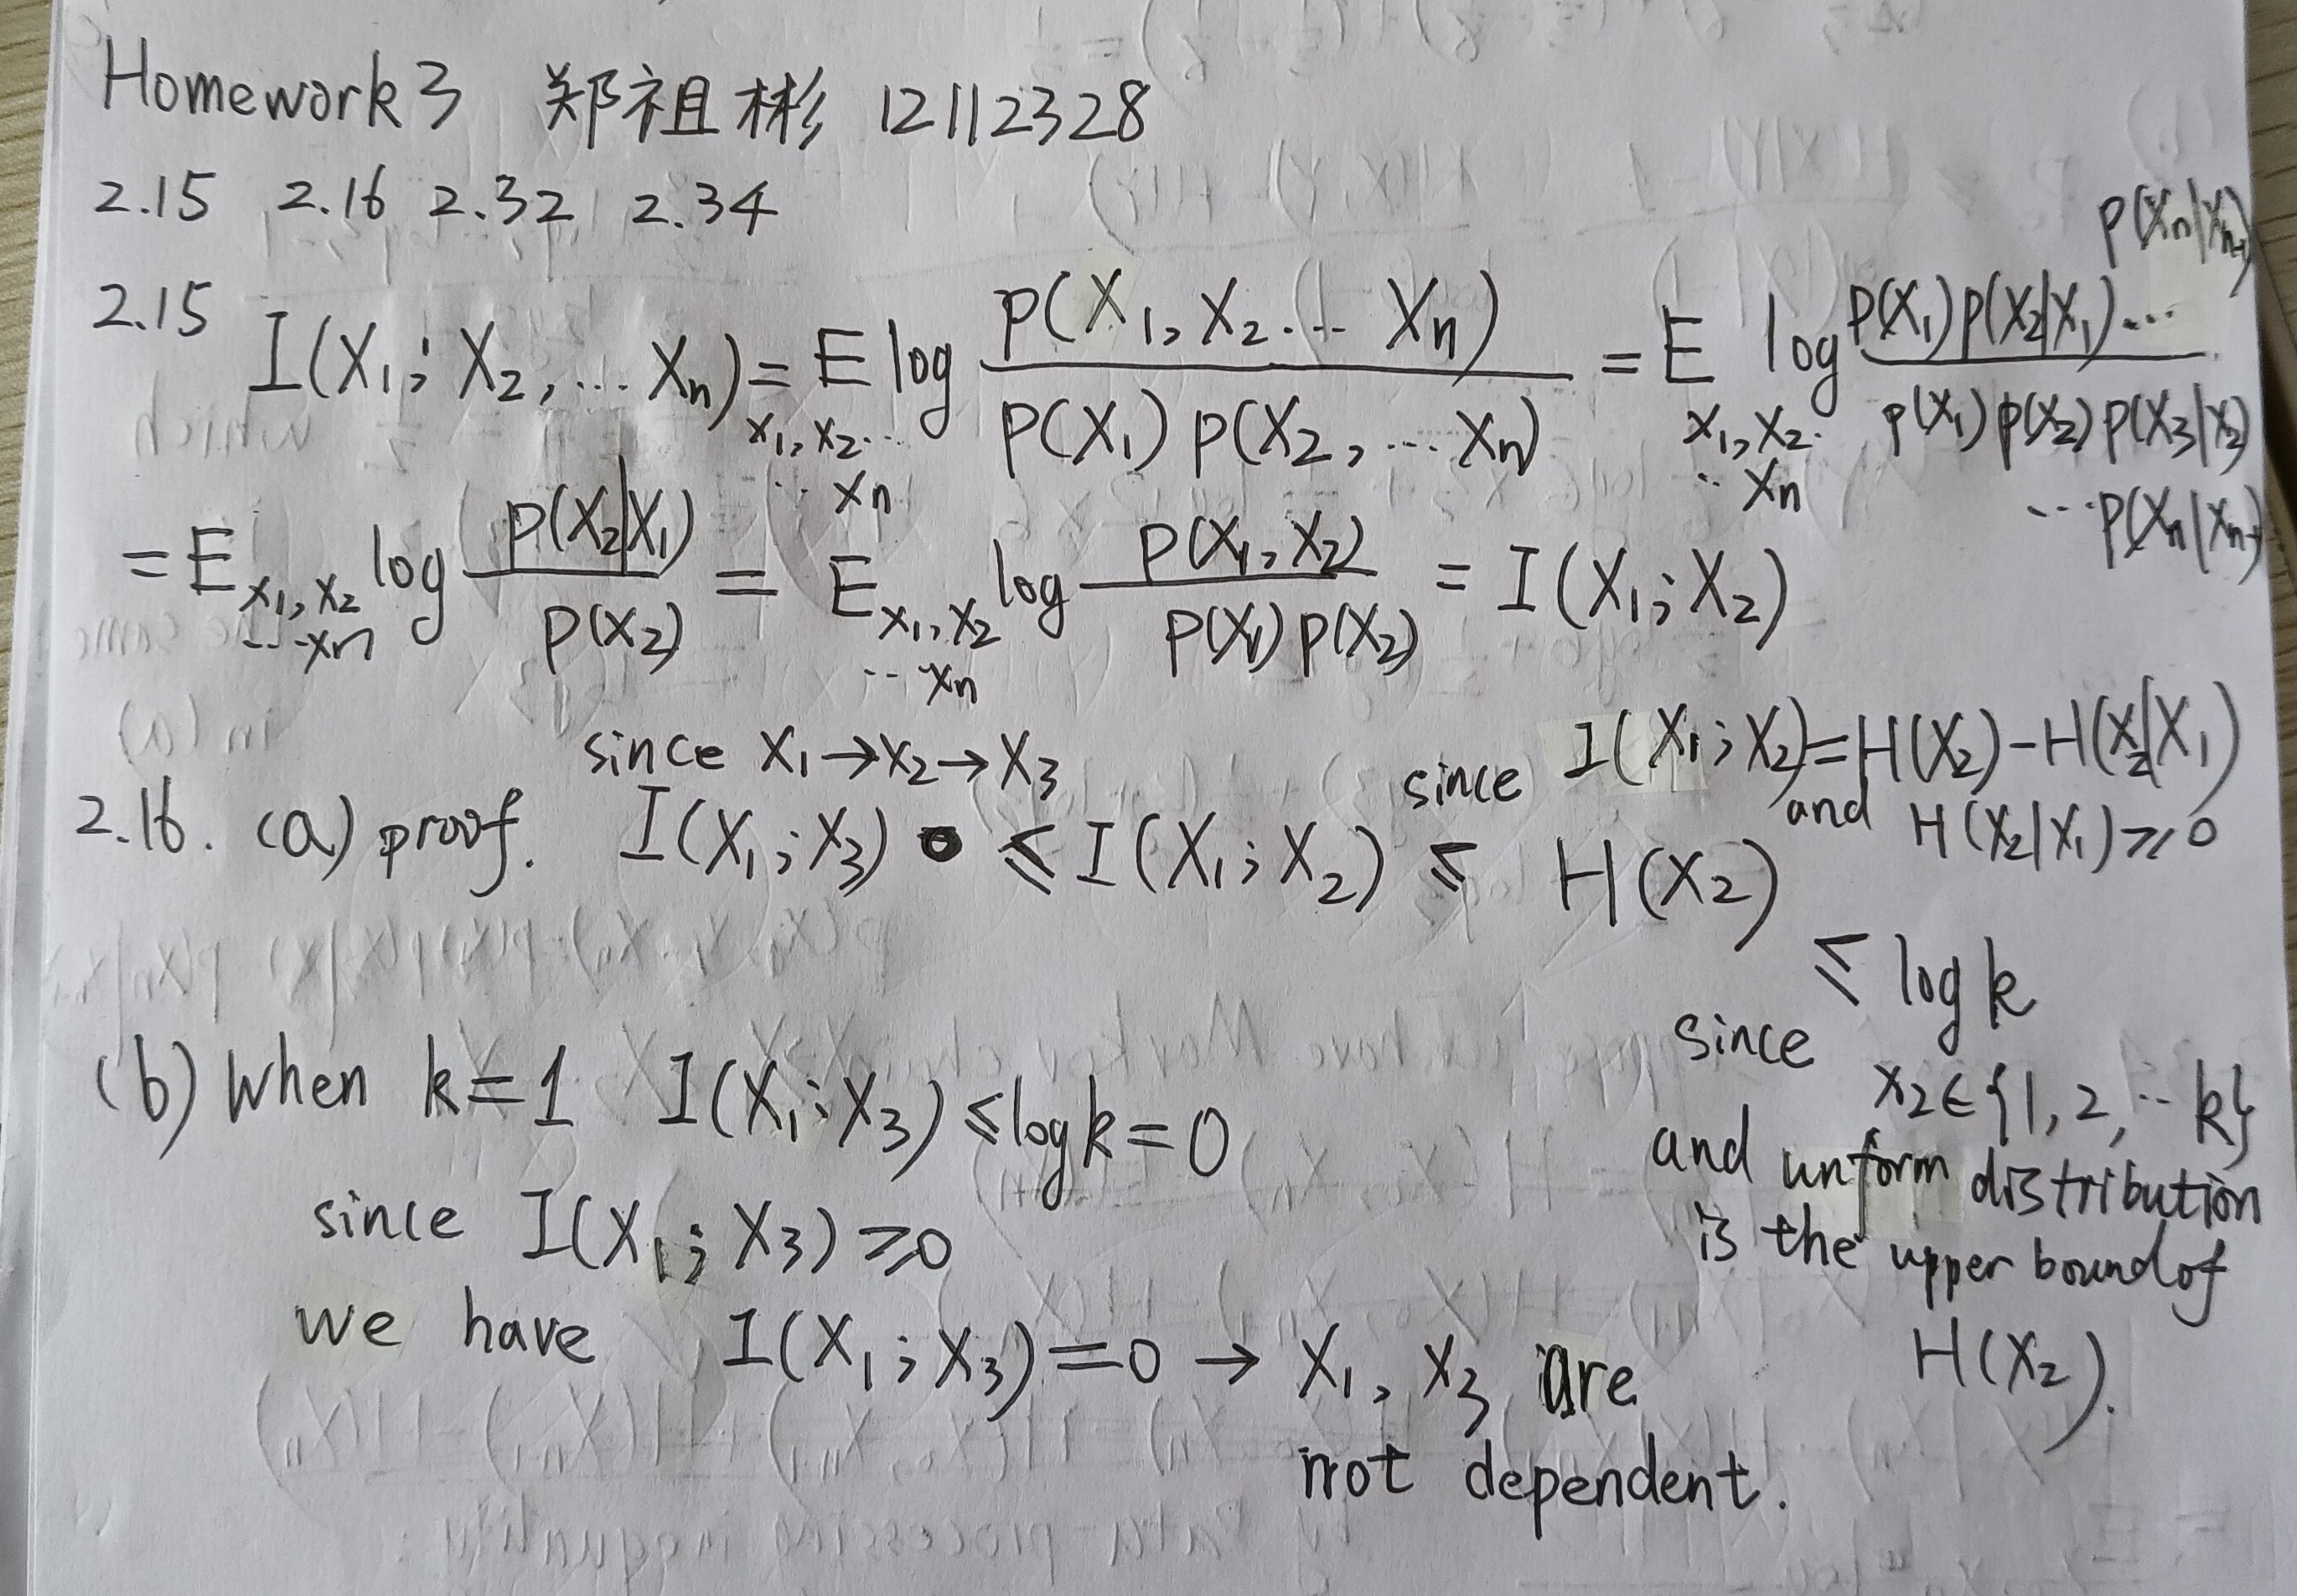 Homework 3 郑祖彬 12112328
2.15 2.16 2.32 2.34
2.15 I(X₁; X₂, ... Xₙ) = E_{X₁, X₂ ... Xₙ} log p(X₁, X₂ ... Xₙ) / p(X₁) p(X₂, ... Xₙ) = E_{X₁, X₂ ... Xₙ} log p(X₁) p(X₂|X₁) ... p(Xₙ|Xₙ₋₁) / p(X₁) p(X₂) p(X₃|X₂) ... p(Xₙ|Xₙ₋₁)
= E_{X₁, X₂ ... Xₙ} log p(X₂|X₁) / p(X₂) = E_{X₁, X₂ ... Xₙ} log p(X₁, X₂) / p(X₁) p(X₂) = I(X₁; X₂)
since X₁ → X₂ → X₃
since I(X₁; X₂) = H(X₂) - H(X₂|X₁)
and H(X₂|X₁) ≥ 0
2.16. (a) proof. I(X₁; X₃) ≤ I(X₁; X₂) ≤ H(X₂)
≤ log k
since
X₂ ∈ {1, 2, ... k}
and unform distribution
is the upper bound of
H(X₂).
(b) When k = 1 I(X₁; X₃) ≤ log k = 0
since I(X₁; X₃) ≥ 0
we have I(X₁; X₃) = 0 → X₁, X₃ are
not dependent.